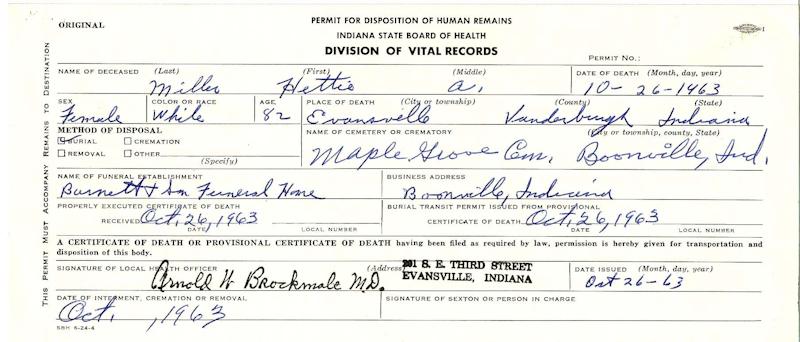 ORIGINAL
PERMIT FOR DISPOSITION OF HUMAN REMAINS
INDIANA STATE BOARD OF HEALTH
DIVISION OF VITAL RECORDS
PERMIT No.:
THIS PERMIT MUST ACCOMPANY REMAINS TO DESTINATION
NAME OF DECEASED (Last) (First) (Middle) DATE OF DEATH (Month, day, year)
Miller Hettie A. 10-26-1963
SEX COLOR OR RACE AGE PLACE OF DEATH (City or township) (County) (State)
Female White 82 Evansville Vanderburgh Indiana
METHOD OF DISPOSAL NAME OF CEMETERY OR CREMATORY (City or township, county, State)
BURIAL CREMATION
REMOVAL OTHER
(Specify)
Maple Grove Cem. Boonville, Ind.
NAME OF FUNERAL ESTABLISHMENT BUSINESS ADDRESS
Burnett & Son Funeral Home Boonville, Indiana
PROPERLY EXECUTED CERTIFICATE OF DEATH BURIAL TRANSIT PERMIT ISSUED FROM PROVISIONAL
RECEIVED Oct. 26, 1963 CERTIFICATE OF DEATH. Oct. 26, 1963
DATE LOCAL NUMBER DATE LOCAL NUMBER
A CERTIFICATE OF DEATH OR PROVISIONAL CERTIFICATE OF DEATH having been filed as required by law, permission is hereby given for transportation and
disposition of this body.
SIGNATURE OF LOCAL HEALTH OFFICER (Address) DATE ISSUED (Month, day, year)
Arnold W Brockmole M.D. 201 S. E. THIRD STREET
EVANSVILLE, INDIANA
Oct 26-63
DATE OF INTERMENT, CREMATION OR REMOVAL SIGNATURE OF SEXTON OR PERSON IN CHARGE
Oct. , 1963
SBH 6-24-4